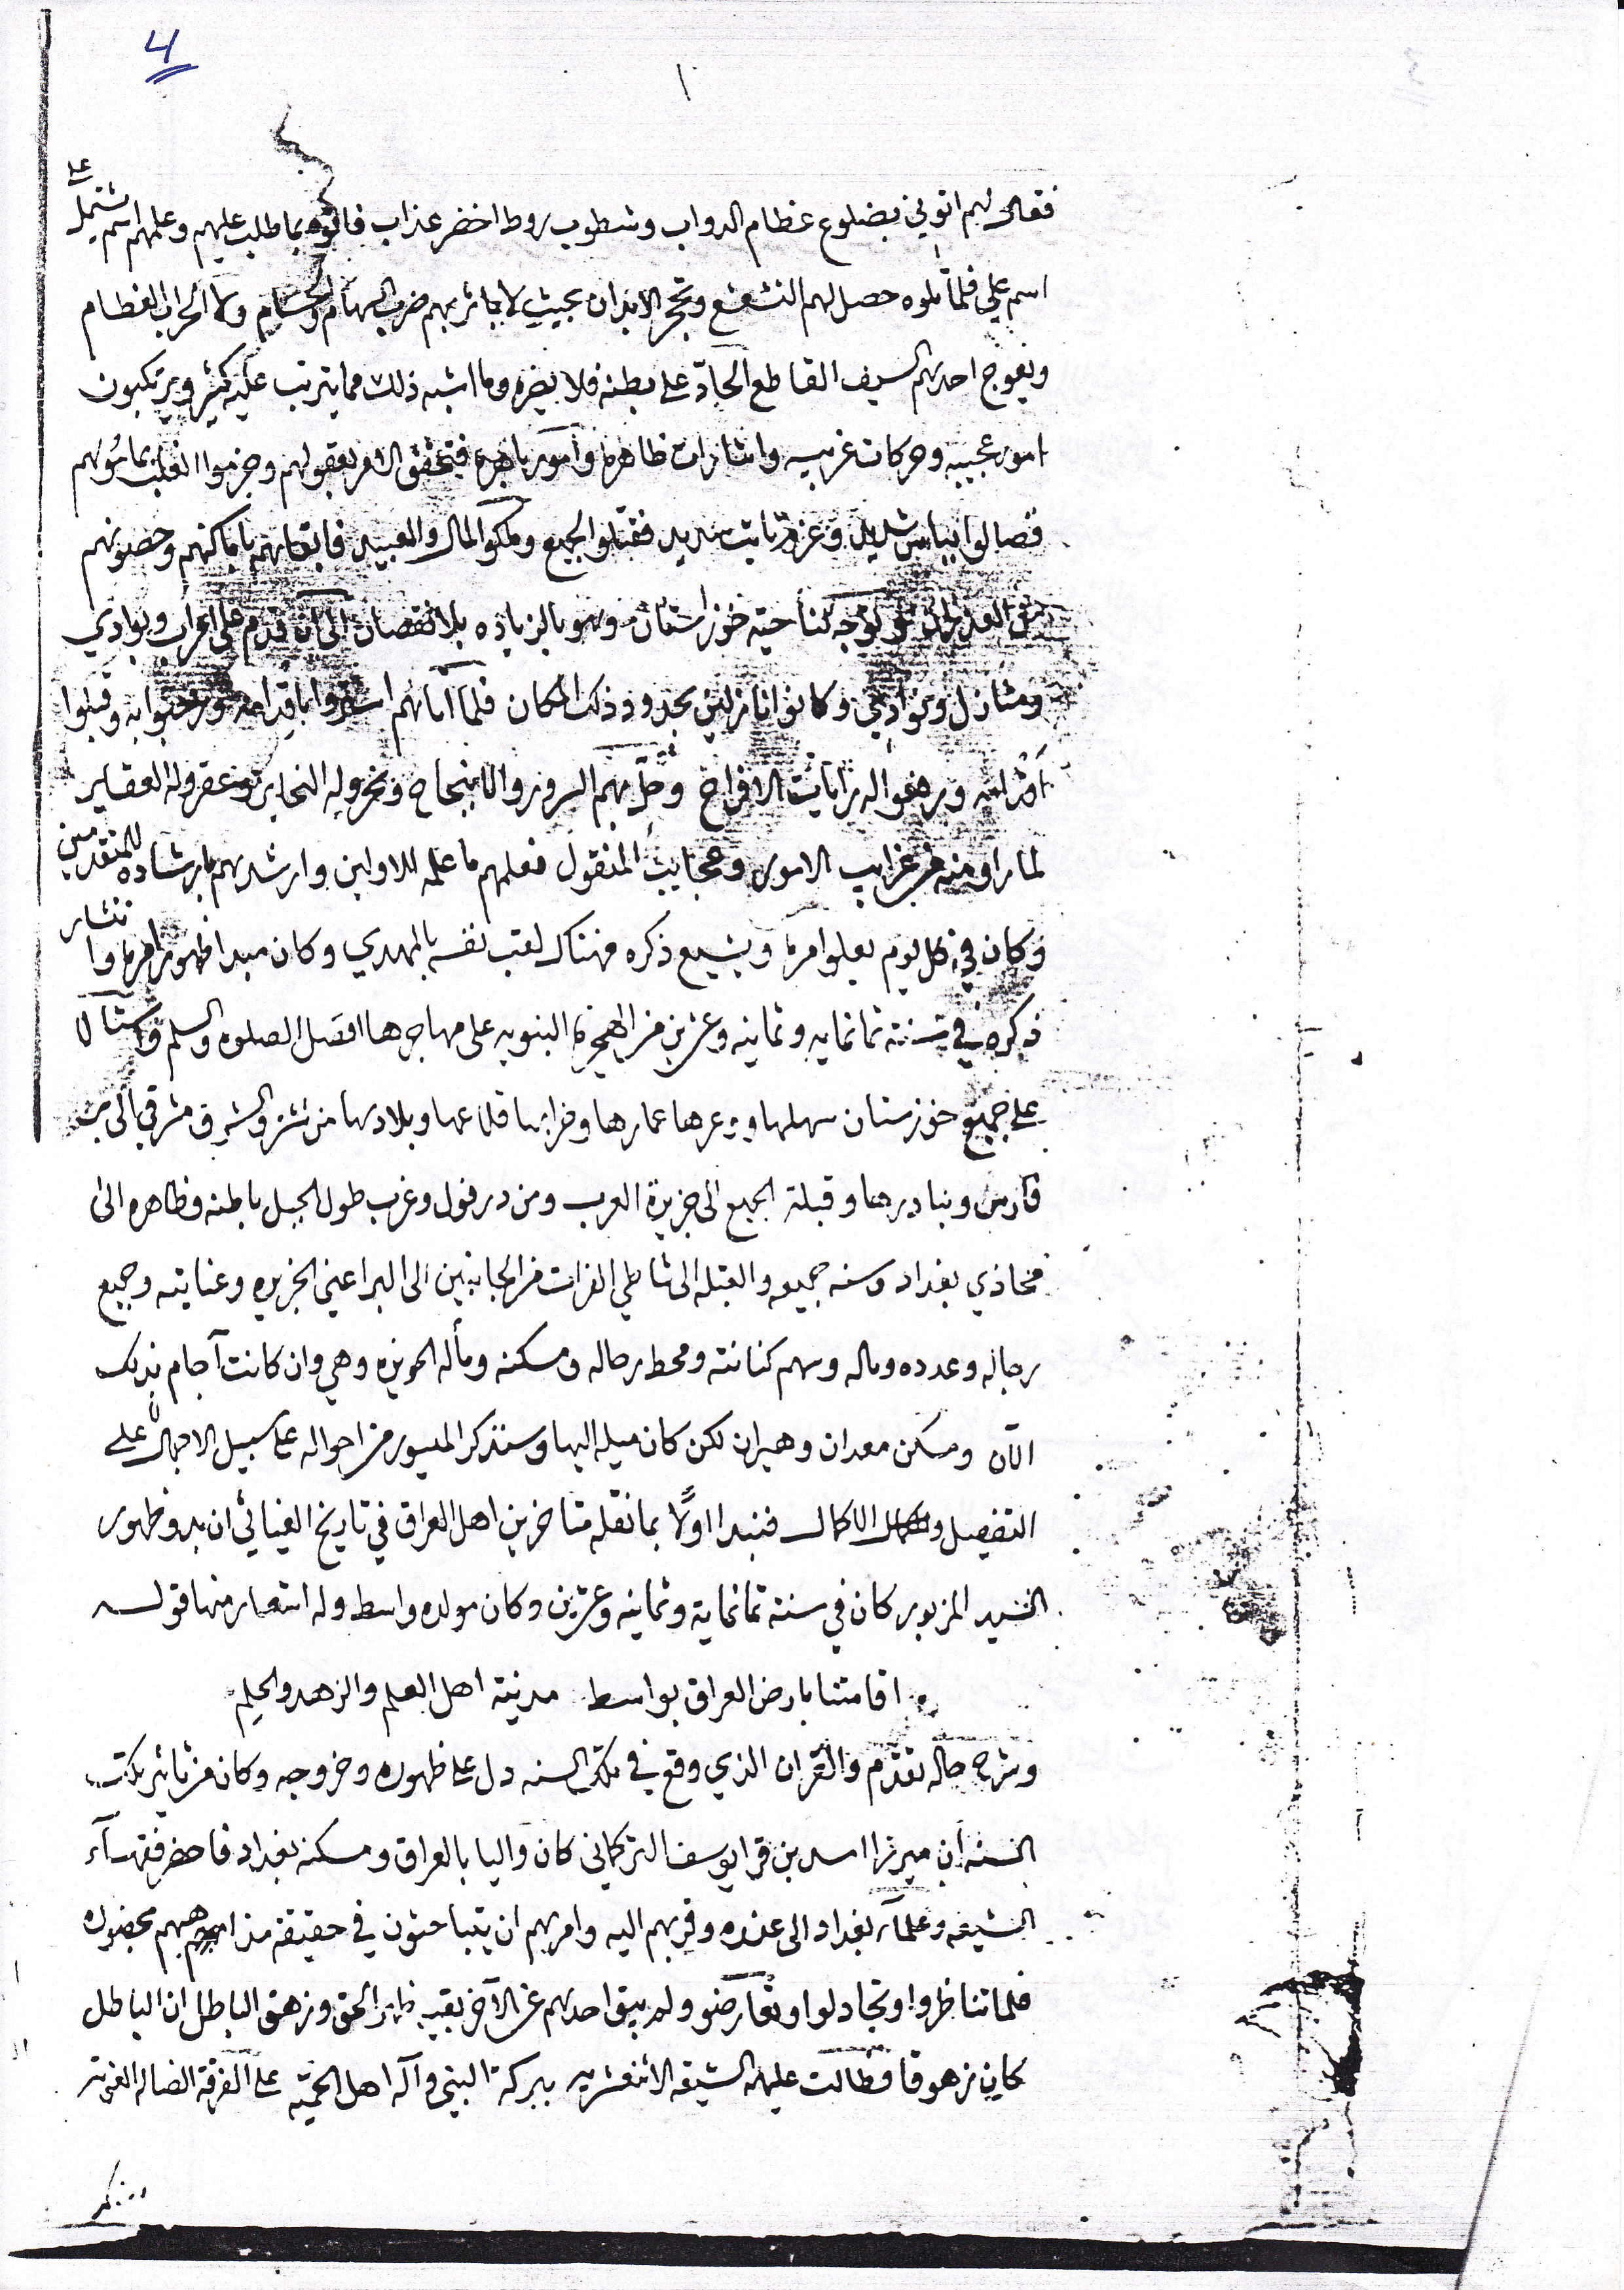 4
١
على
فقال لهم اتوني بضلوع عظام الدواب وشطوب روط اخضر عذاب فاتوه بما طلب عليهم وعلمهم اسم يشتمل
اسم علي فلما تلوه حصل لهم التشعشع وتحجر الابدان بحيث لا يتاثر بهم ضرب السهام والحسام ولا الحراب العظام
ويعوج احدهم السيف القاطع الحادّ على بطنه فلا يضره وما اشبه ذلك مما يترتب عليه كثير ويرتكبون
امور عجيبه وحركات غريبه واشارات ظاهره وامور باهره فتحقق الامر بعقولهم وجزموا الغلب بمامولهم
فصالوا بباس شديد وعزم ثابت سديد فقتلوا الجميع وملكوا المال والعبيد فابقاهم باماكنهم وحصونهم
توجه لناحية خوزستان وهو بالزياده بلا نقصان الى ان قدم على اعراب وبوادي
ومنازل ونوادي وكانوا نازلين بحدود ذلك المكان فلما اتاهم وقبلوا
اقدامه ورفعوا له رايات الافراح وحلّ بهم السرور والانجاح ونحروا له النحاير وعقروا له العقاير
لما راو منه من غرايب الامور وعجايب المنقول فعلمهم ما علمه للاولين وارشدهم بارشاده للمتقدمين
وكان في كل يوم يعلوا امره ويشيع ذكره فهناك لقب نفسه بالمهدي وكان مبدا ظهور امره وانتشار
ذكره في سنة ثمانمايه وثمانيه وعشرين من الهجرة النبويه على مهاجرها افضل الصلوه والسلم
على جميع خوزستان سهلها ووعرها عمارها وخرابها قلاعها وبلادها من تستر والشرق مشرقي الى
فارس وبنادرها وقبلة الجميع الى جزيرة العرب ومن درفول وغرب طول الجبل باطنه وظاهره الى
محاذي بغداد وسنه جميعه والقبله الى شاطي الفرات من الجانبين الى البر اعني الجزيره وعنايته وجميع
رجاله وعدده وماله وسهم كنانته ومحط رحاله ومسكنه ومأله الحويزه وهي وان كانت آجام بذلك
الآن ومسكن معدان وهيران لكن كان ميله اليها وسنذكر الميسور من احواله على سبيل الاجمال على
التفصيل والاكمال فنبدا اولًا بما نقله متاخرين اهل العراق في تاريخ الغياثي ان بدو ظهور
السيد المزبور كان في سنة ثمانماية وثمانيه وعشرين وكان مولده واسط وله اشعار منها قوله
اقامتنا بارض العراق بواسط مدينة اهل العلم والزهد والحلم
وشرح حاله تقدّم والقران الذي وقع في تلك السنه دل على ظهوره وخروجه وكان من تاثير تلك
السنه أن ميرزا اسد بن قرا يوسف التركماني كان واليا بالعراق ومسكنه بغداد فاحضر فقهآء
الشيعه وعلمآء بغداد الى عنده وقربهم اليه وامرهم ان يتباحثون في حقيقة مذاهبهم بحضوره
فلما تناظروا وتجادلوا وتعارضو ولم يبق احدهم عن الآخر بقيه ظهر الحق وزهق الباطل ان الباطل
كان زهوقا فطالت عليه الشيعه الاثنعشريه ببركة النبي وآله اهل الحميّه على الفرقة الضاله الغير